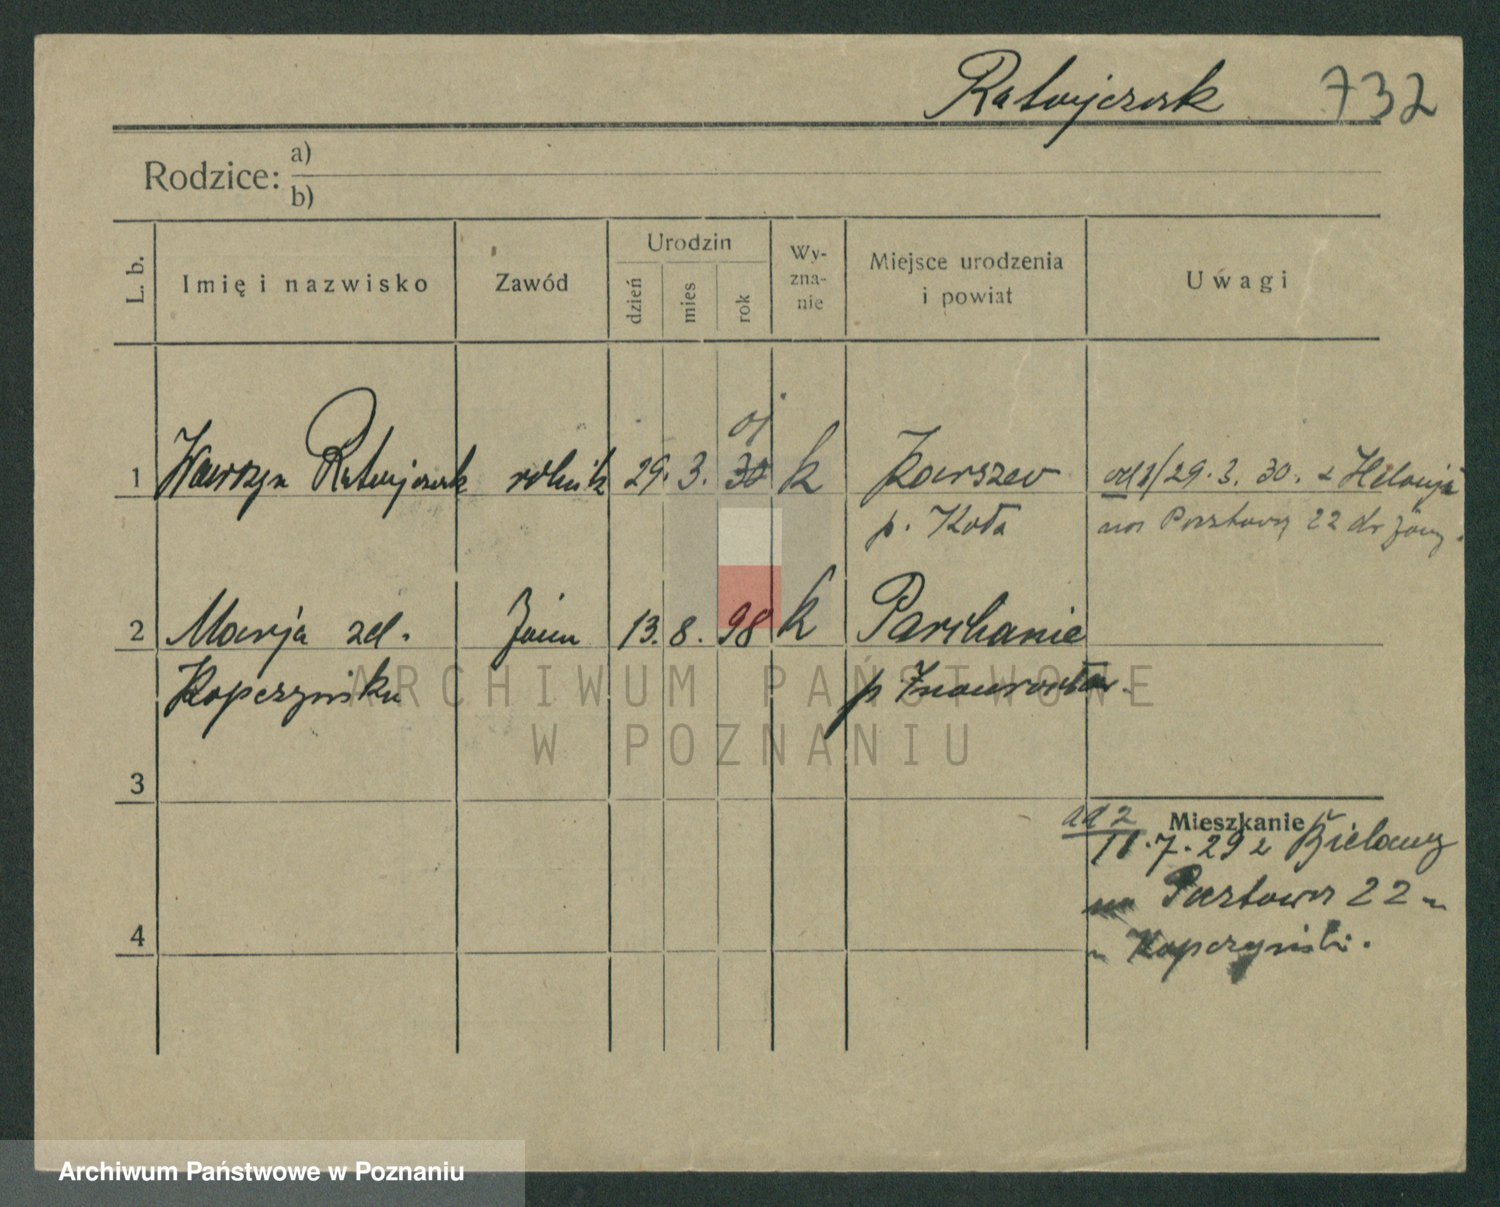 Ratajczak 732
Rodzice: a)
b)
L. b. Imię i nazwisko Zawód Urodzin dzień mies rok Wy-zna-nie Miejsce urodzenia i powiat Uwagi
01
1 Wawrzyn Ratajczak rolnik 29. 3. 30 k Karszew od 1/29. 3. 30. z
p. Koła na Pocztowy 22
2 Marja zd. żona 13. 8. 98 k Parchanie
Kopczyńska p Inowrocław.
3
ad 2 Mieszkanie
11.7.29 z Bielawy
na Pocztowa 22
Kopczyński.
4
ARCHIWUM PAŃSTWOWE
W POZNANIU
Archiwum Państwowe w Poznaniu